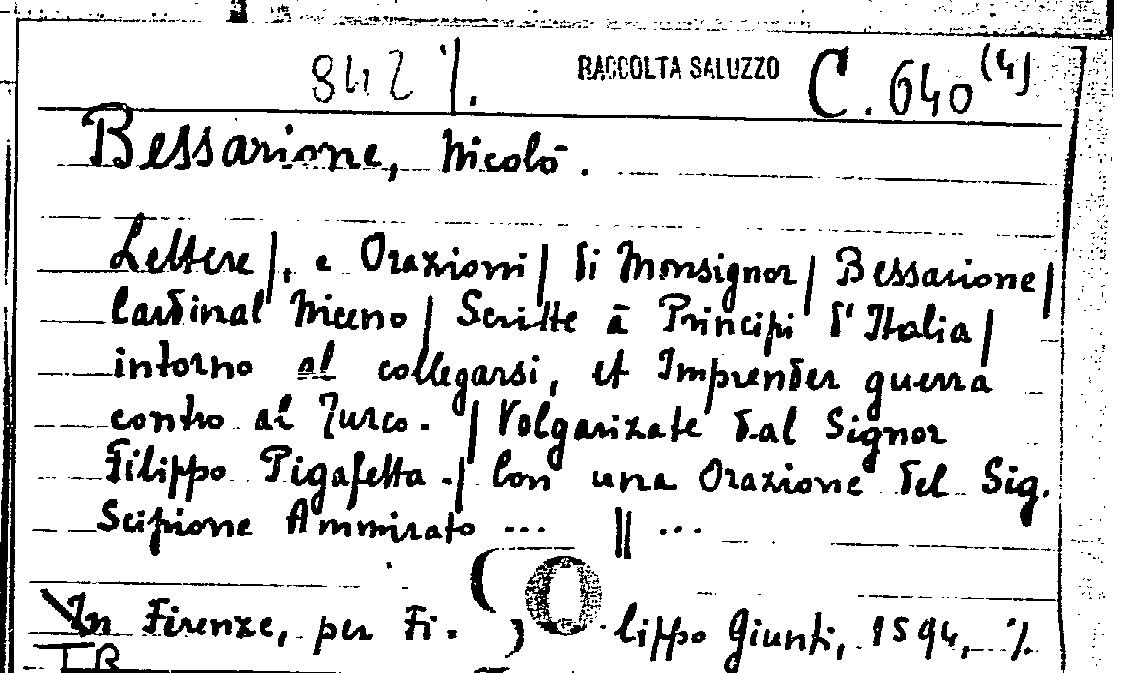 842 /. RACCOLTA SALUZZO C. 640 (4)
Bessarione, Nicolò.
Lettere|, e Orazioni| di Monsignor| Bessarione|
Cardinal Niceno| Scritte à Principi d'Italia|
intorno al collegarsi, et Imprender guerra
contro al Turco. | Volgarizate dal Signor
Filippo Pigafetta.| Con una Orazione del Sig.
Scipione Ammirato ... || ...
In Firenze, per Fi. lippo Giunti, 1594, %